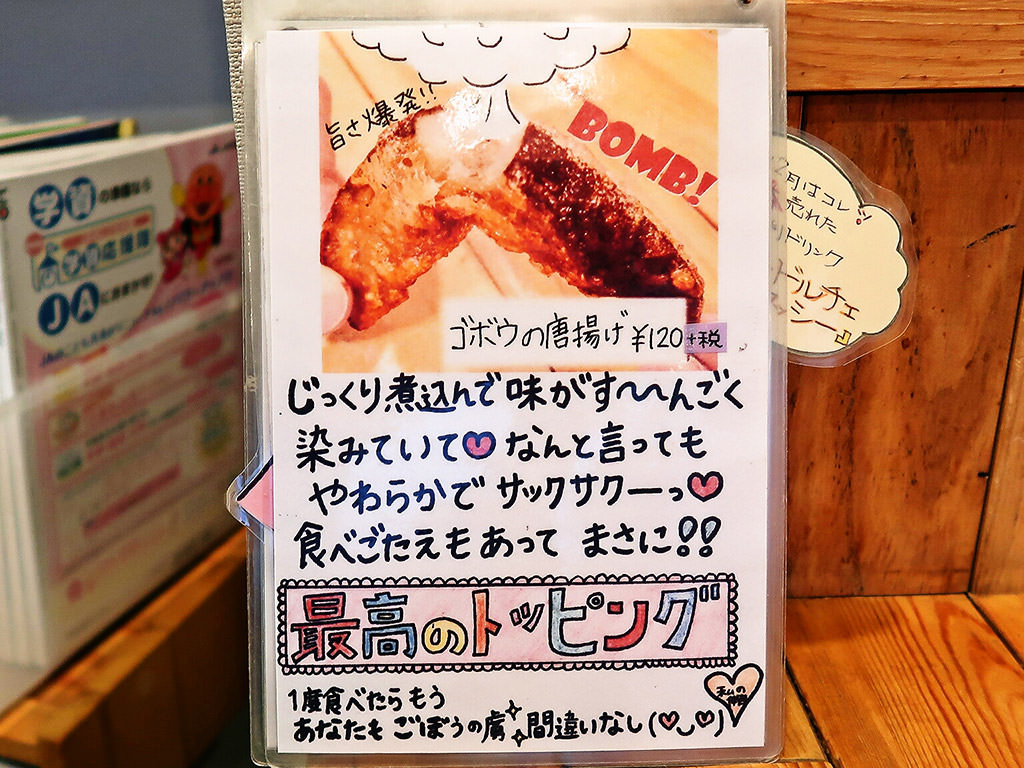 旨さ爆発!!
BOMB!
ゴボウの唐揚げ ¥120+税
じっくり煮込んで味がす〜〜んごく
染みていて♥なんと言っても
やわらかで サックサクーっ♥
食べごたえもあって まさに!!
最高のトッピング
1度食べたらもう
あなたも ごぼうの虜 間違いなし(♥◡♥)
私の
2月はコレ!!
売れた
ドリンク
ドルチェ
学資
JA